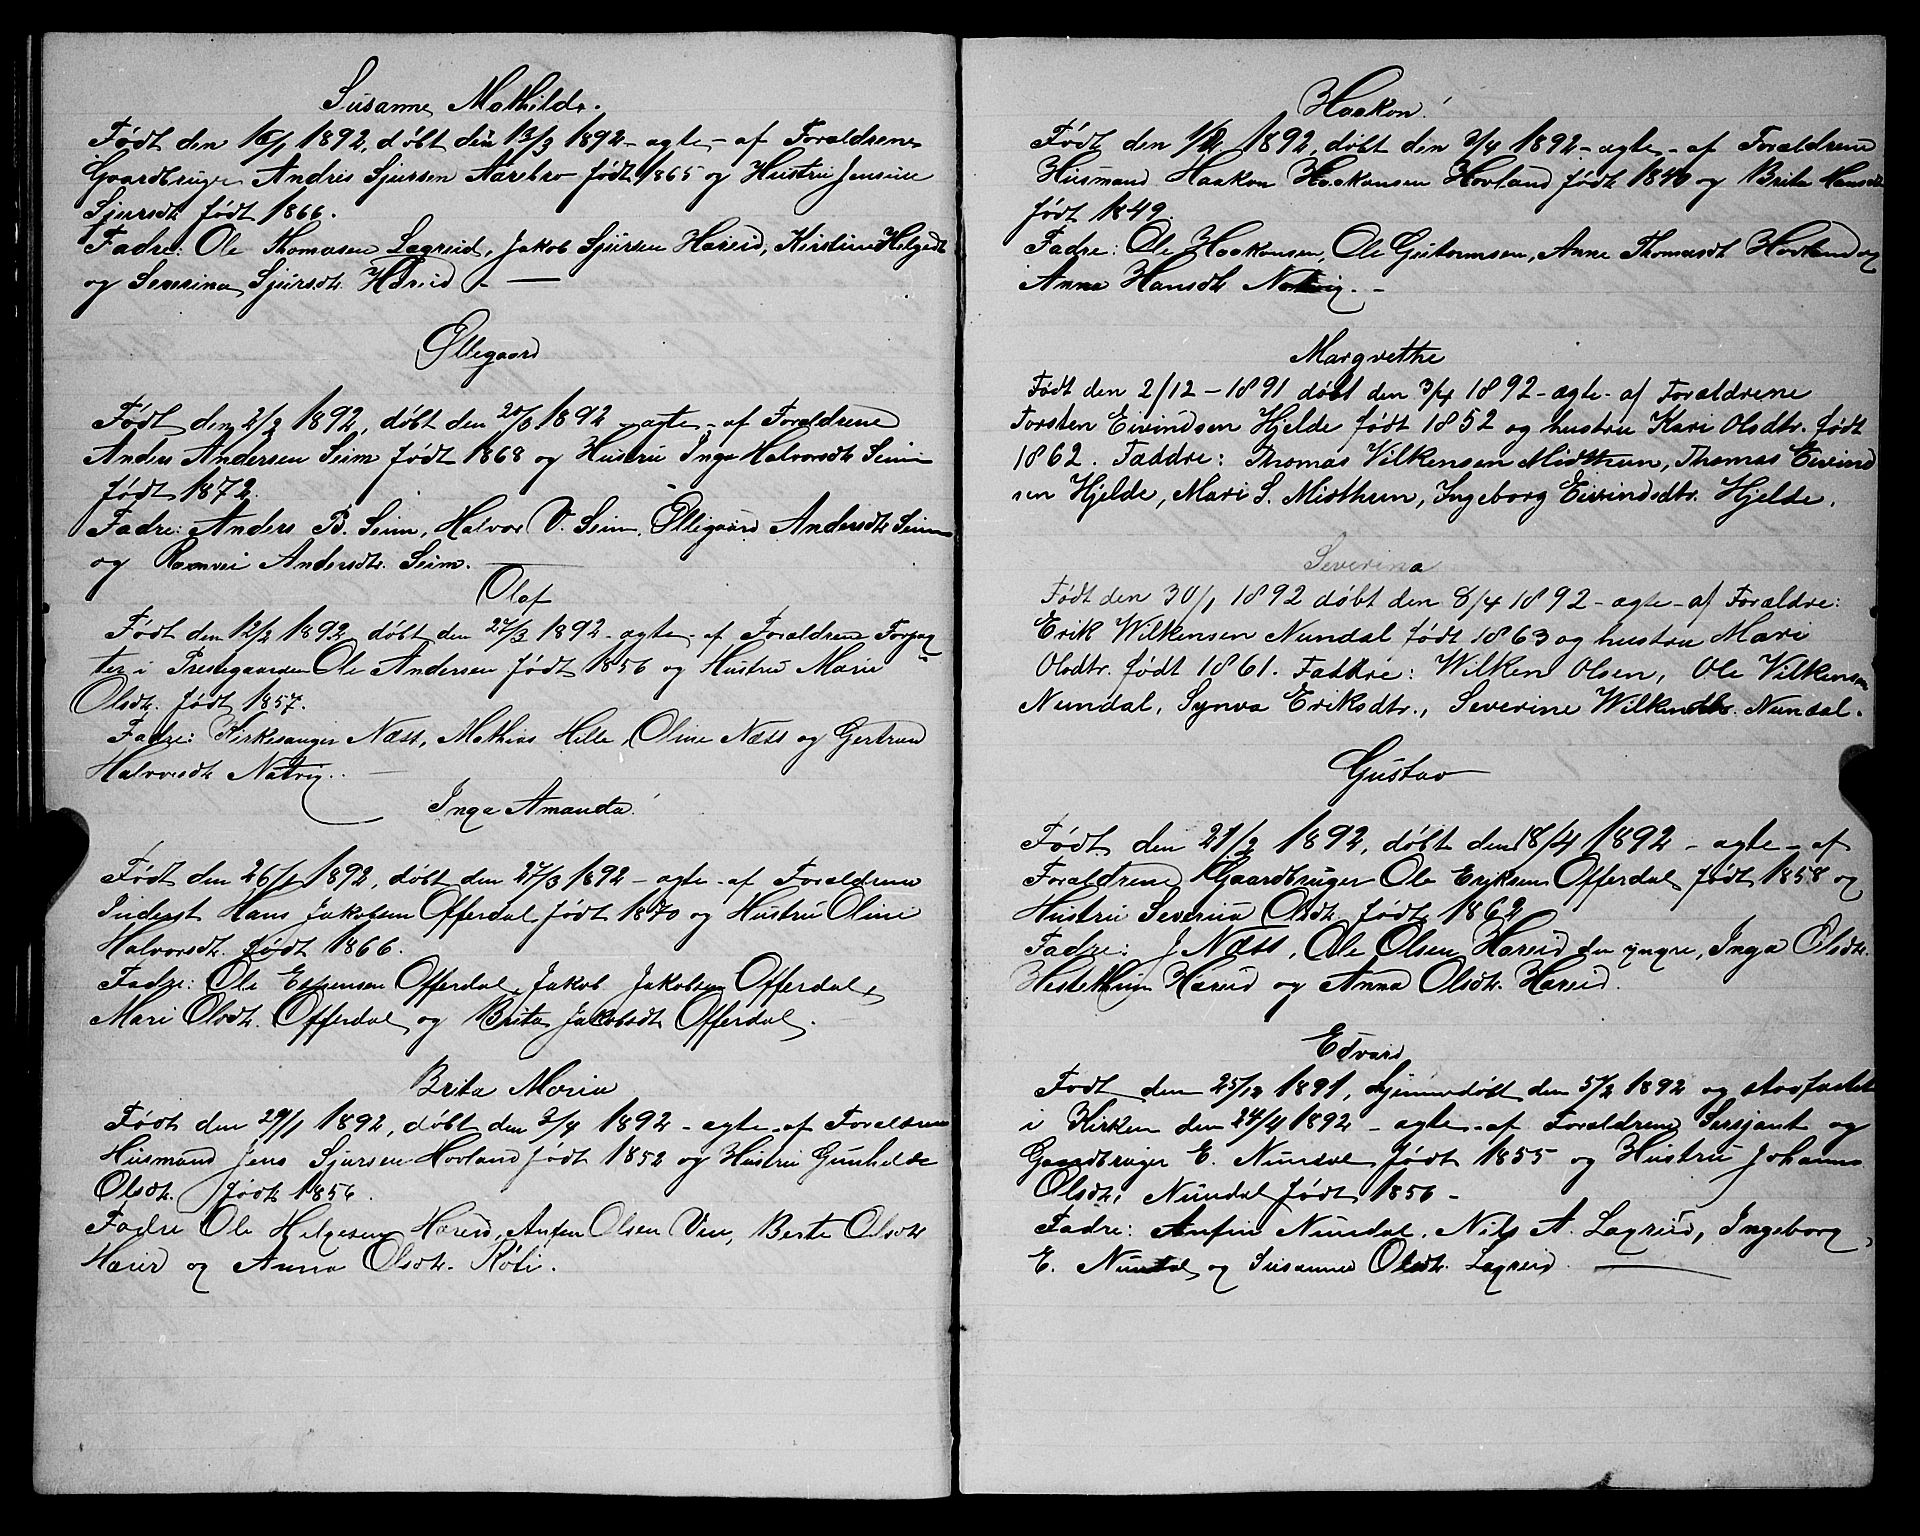 Susanne Mathilde.
Født den 16/1 1892, døbt den 13/3 1892 - ægte - af Forældrene
Gaardbruger Andris Sjursen Aarebro født 1865 og Hustru Jensine
Sjursdtr født 1866.
Fadre: Ole Thomasen Lægreid, Jakob Sjursen Hæreid, Kirstine Helgedtr
og Severina Sjursdtr Hæreid -
Øllegaard
Født den 2/2 1892, døbt den 20/3 1892 - ægte - af Forældrene
Anders Andersen Seim født 1868 og Hustru Inga Halvorsdtr Seim
født 1872.
Fadre: Anders B. Seim, Halvor V. Seim, Øllegaard Andersdtr Seim
og Rannvei Andersdtr. Seim.
Olaf
Født den 12/2 1892 døbt den 27/3 1892 - ægte - af Forældrene Forpag
ter i Prestegaarden Ole Andersen født 1856 og Hustru Marie
Olsdtr. født 1857.
Fadre: Kirkesanger Næss, Mathias Hille, Oline Næss og Gertrud
Halvorsdtr Natvig.
Inga Amanda
Født den 26/1 1892, døbt den 27/3 1892 - ægte - af Forældrene
Inderst Hans Jakobsen Offerdal født 1870 og Hustru Oline
Halvorsdtr. født 1866.
Fadre: Ole Espensen Offerdal, Jakob Jakobsen Offerdal,
Mari Olsdtr. Offerdal og Brita Jakobsdtr Offerdal.
Brita Maria
Født den 29/1 1892, døbt den 3/4 1892 - ægte - af Forældrene
Husmand Jens Sjursen Hovland født 1852 og Hustru Gunhilde
Olsdtr. født 1856.
Fadre Ole Helgesen Hæreid, Anfin Olsen Vee, Berte Olsdtr
Hæreid og Anna Olsdtr. Røti.
Haakon
Født den 1/2 1892, døbt den 3/4 1892 - ægte - af Forældrene
Husmand Haakon Haakonsen Hovland født 1840 og Brita Hansdtr
født 1849.
Fadre: Ole Haakonsen, Ole Guttormsen, Anne Thomasdtr Hovland og
Anna Hansdtr Natvig. -
Margrethe
Født den 2/12 - 1891 døbt den 3/4 1892 - ægte - af Forældrene
Torsten Eivindsen Hjelde født 1852 og hustru Kari Olsdtr. født
1862. Faddre: Thomas Vilkensen Midthun, Thomas Eivind
sen Hjelde, Mari S. Midthun, Ingeborg Eivindsdtr. Hjelde.
Severina
Født den 30/1 1892 døbt den 8/4 1892 - ægte - af Forældre:
Erik Wilkensen Nundal født 1863 og hustru Mari
Olsdtr. født 1861. Faddre: Wilken Olsen, Ole Vilkensen
Nundal, Synva Eriksdtr., Severine Wilkensdtr. Nundal.
Gustav
Født den 21/2 1892, døbt den 18/4 1892 - ægte - af
Forældrene Gaardbruger Ole Eriksen Offerdal født 1858 og
Hustru Severina Olsdtr. født 1862
Fadre: J Næss, Ole Olsen Hæreid den yngre, Inga Olsdtr.
Hestethun Hæreid og Anna Olsdtr. Hæreid.
Edvard
Født den 25/12 1891, hjemmedøbt den 5/2 1892 og stadfæstet
i Kirken den 24/4 1892 - ægte - af Forældrene Sersjant og
Gaardbruger E. Nundal født 1855 og Hustru Johanne
Olsdtr. Nundal født 1856 -
Fadre: Anfin Nundal, Nils A. Lægreid, Ingeborg
E. Nundal og Susanne Olsdtr. Lægreid.